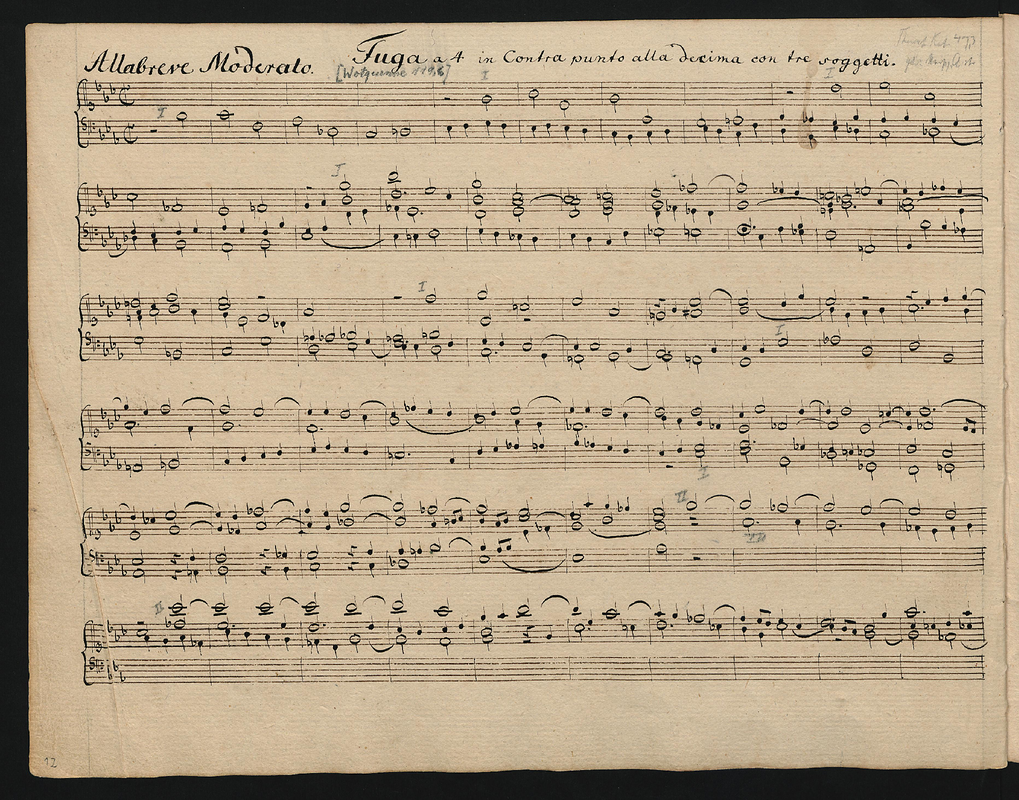 Allabreve Moderato. Fuga a 4 in Contra punto alla decima con tre soggetti.
[Wotquenne 119,6]
I
I
I
I
I
I
I
II
III
II
12